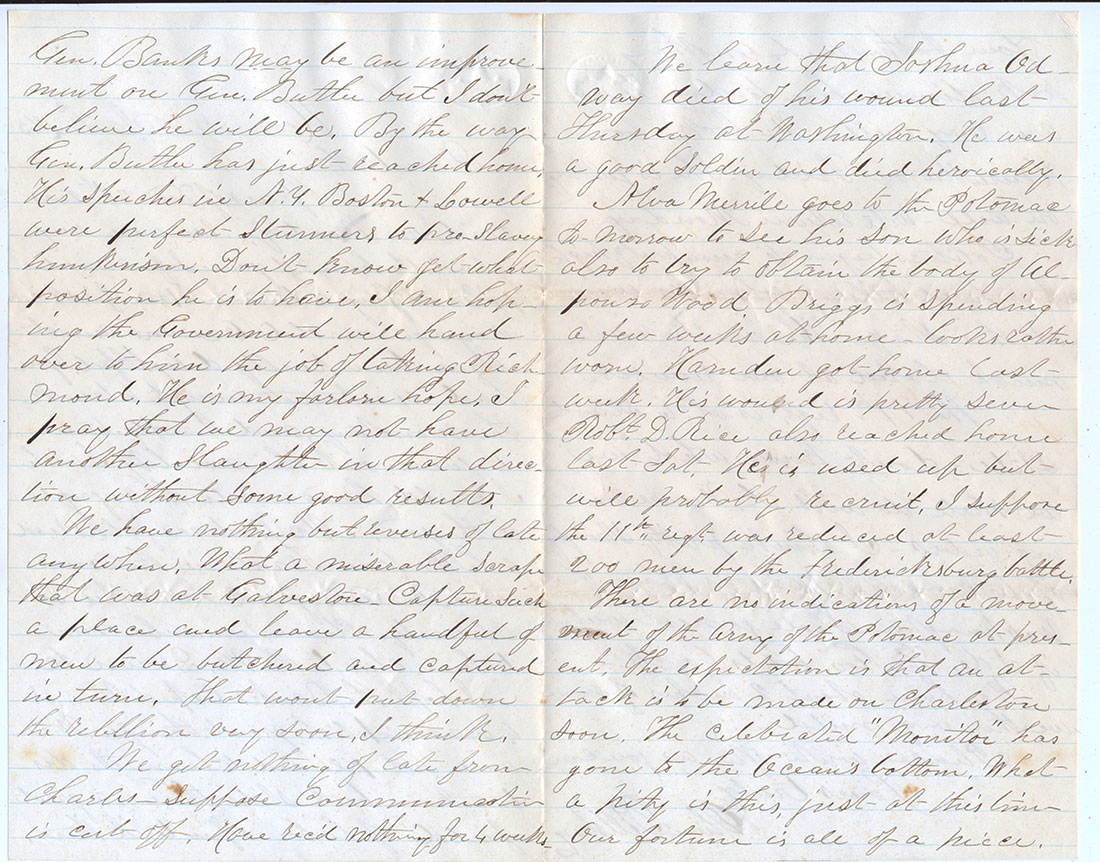 Gen. Banks may be an improve-
ment on Gen. Butler but I don't
believe he will be. By the way
Gen. Butler has just reached home.
His speeches in N.Y. Boston & Lowell
were perfect Stunners to pro-slavery
hunkerism. Don't know yet what
position he is to have. I am hop-
ing the Government will hand
over to him the job of taking Rich
mond. He is my forlorn hope. I
pray that we may not have
another Slaughter in that direc-
tion without some good results.
We have nothing but reverses of late
anywhere. What a miserable scrape
that was at Galveston - Capture such
a place and leave a handful of
men to be butchered and captured
in turn. That wont put down
the rebellion very soon, I think.
We get nothing of late from
Charles - Suppose Communication
is cut off. Have rec'd nothing for 4 weeks.
We learn that Joshua Od-
way died of his wound last
Thursday at Washington. He was
a good Soldier and died heroically.
Alva Merrile goes to the Potomac
to morrow to see his son who is sick
also to try to obtain the body of Al-
ponzo Wood. Briggs is spending
a few weeks at home - looks rather
worn. Hamden got home last
week. His wound is pretty severe
Robt. D. Rice also reached home
last Sat. He is used up but
will probably recruit. I suppose
the 11th regt was reduced at least
200 men by the Fredericksburg battle.
There are no indications of a move-
ment of the Army of the Potomac at pres-
ent. The expectation is that an at-
tack is to be made on Charleston
soon. The celebrated "Monitor" has
gone to the Ocean's bottom. What
a pity is this, just at this time
Our fortune is all of a piece.